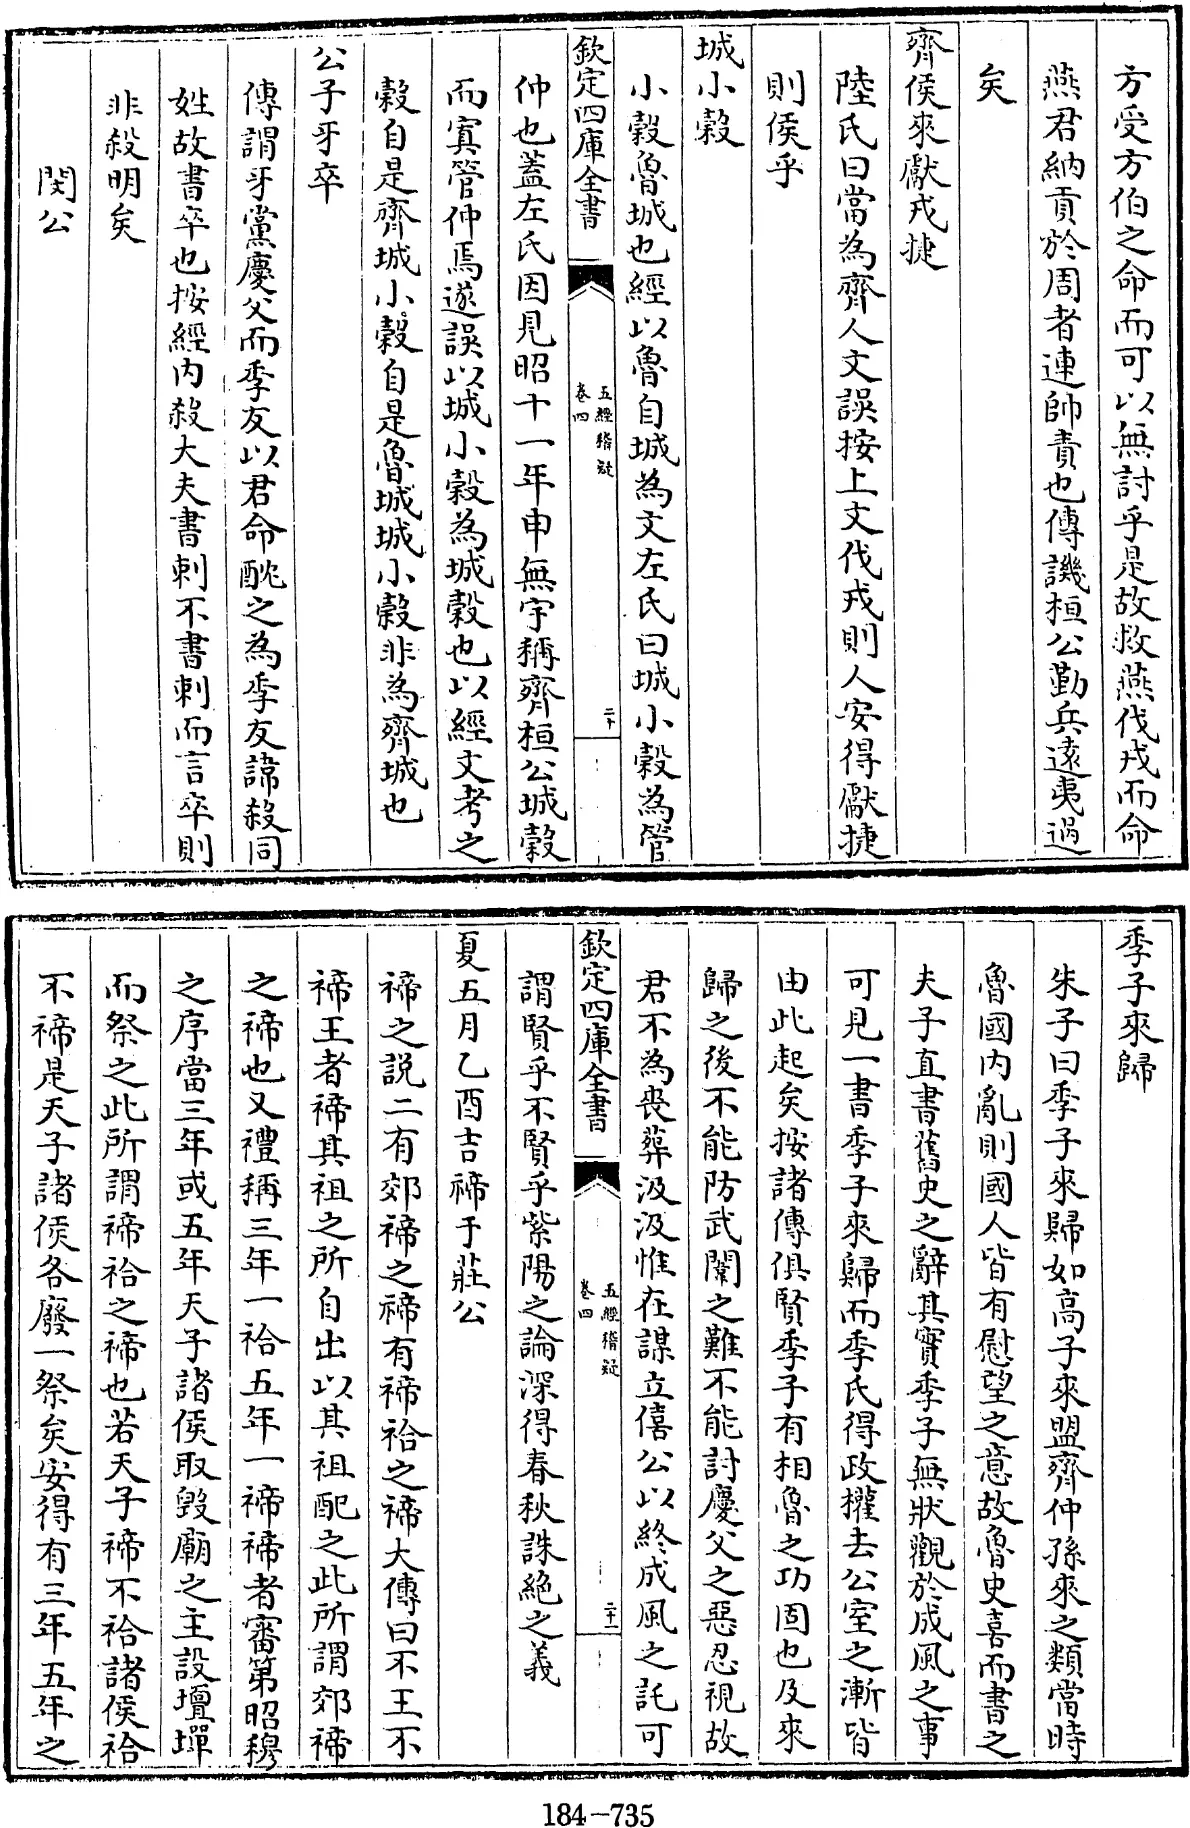 方受方伯之命而可以無討乎是故救燕伐戎而命
燕君納貢於周者連帥責也傳譏桓公勤兵遠夷過
矣
齊侯來獻戎捷
陸氏曰當為齊人文誤按上文伐戎則人安得獻捷
則侯乎
城小穀
小穀魯城也經以魯自城為文左氏曰城小穀為管
欽定四庫全書
五經稽疑
卷四
二十
仲也蓋左氏因見昭十一年申無宇稱齊桓公城穀
而寘管仲焉遂誤以城小穀為城穀也以經文考之
穀自是齊城小穀自是魯城城小穀非為齊城也
公子牙卒
傳謂牙黨慶父而季友以君命酖之為季友諱殺同
姓故書卒也按經內殺大夫書刺不書刺而言卒則
非殺明矣
閔公
季子來歸
朱子曰季子來歸如高子來盟齊仲孫來之類當時
魯國內亂則國人皆有慰望之意故魯史喜而書之
夫子直書舊史之辭其實季子無狀觀於成風之事
可見一書季子來歸而季氏得政權去公室之漸皆
由此起矣按諸傳俱賢季子有相魯之功固也及來
歸之後不能防武闈之難不能討慶父之惡忍視故
君不為喪葬汲汲惟在謀立僖公以終成風之託可
欽定四庫全書
五經稽疑
卷四
二十一
謂賢乎不賢乎紫陽之論深得春秋誅絕之義
夏五月乙酉吉禘于莊公
禘之說二有郊禘之禘有禘祫之禘大傳曰不王不
禘王者禘其祖之所自出以其祖配之此所謂郊禘
之禘也又禮稱三年一祫五年一禘禘者審第昭穆
之序當三年或五年天子諸侯取毀廟之主設壇墠
而祭之此所謂禘祫之禘也若天子禘不祫諸侯祫
不禘是天子諸侯各廢一祭矣安得有三年五年之
184-735